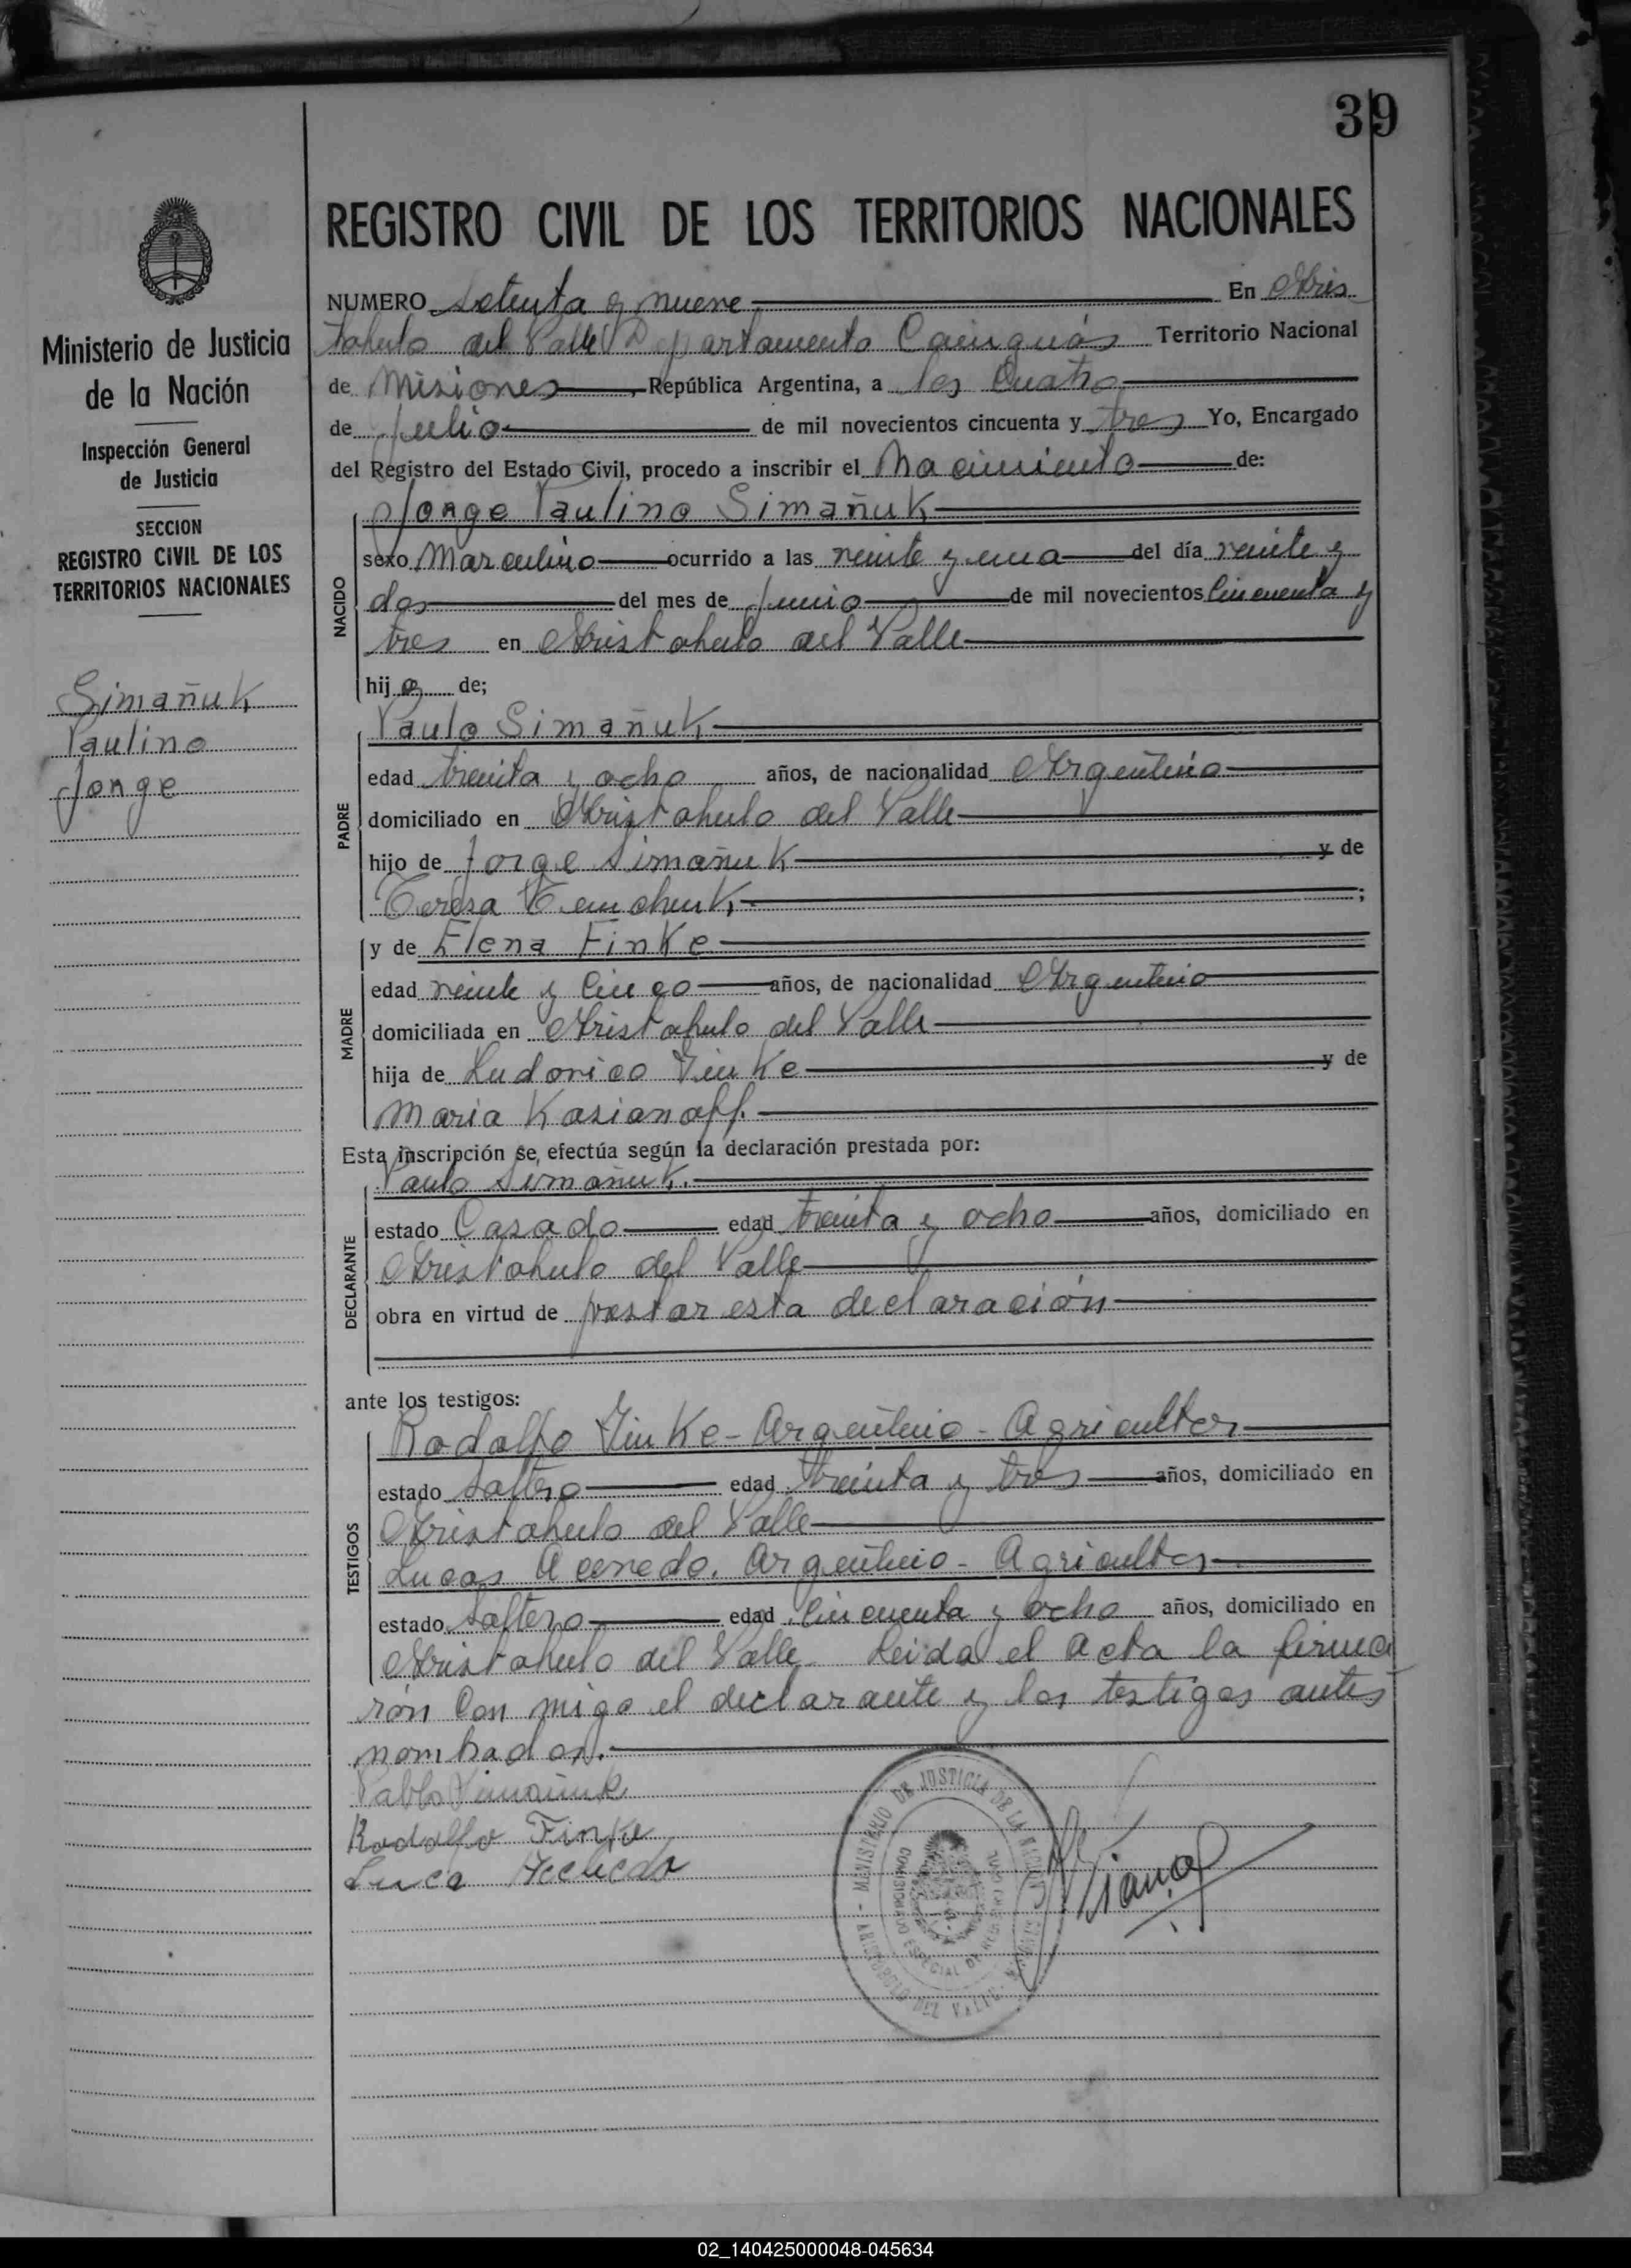 39
REGISTRO CIVIL DE LOS TERRITORIOS NACIONALES
Ministerio de Justicia
de la Nación
Inspección General
de Justicia
SECCION
REGISTRO CIVIL DE LOS
TERRITORIOS NACIONALES
Simañuk
Paulino
Jorge
NUMERO setenta y nueve En Aris
tobulo del Valle Departamento Cainguás Territorio Nacional
de Misiones, República Argentina, a los Cuatro
de julio de mil novecientos cincuenta y tres Yo, Encargado
del Registro del Estado Civil, procedo a inscribir el Nacimiento de:
NACIDO
Jorge Paulino Simañuk
sexo Marculino ocurrido a las veinte y una del día veinte y
dos del mes de junio de mil novecientos Cincuenta y
tres en Aristobulo del Valle
hijo de;
PADRE
Paulo Simañuk
edad treinta y ocho años, de nacionalidad Argentino
domiciliado en Aristobulo del Valle
hijo de Jorge Simañuk y de
Teresa Temchuk ;
MADRE
y de Elena Finke
edad veinte y Cinco años, de nacionalidad Argentino
domiciliada en Aristobulo del Valle
hija de Ludovico Finke y de
Maria Kasianoff.
Esta inscripción se efectúa según la declaración prestada por:
DECLARANTE
Paulo Simañuk.
estado Casado edad treinta y ocho años, domiciliado en
Aristobulo del Valle
obra en virtud de prestar esta declaración
ante los testigos:
TESTIGOS
Rodolfo Finke - Argentino - Agricultor
estado Soltero edad treinta y tres años, domiciliado en
Aristobulo del Valle
Lucas Acevedo. Argentino - Agricultor
estado Soltero edad Cincuenta y ocho años, domiciliado en
Aristobulo del Valle. Leida el acta la firma
rón Con migo el declarante y los testigos antes
nombrados.
Pablo Simañuk
Rodolfo Finke
Luca Acebedo
MINISTERIO DE JUSTICIA DE LA NACION
ARISTOBULO DEL VALLE
02_140425000048-045634